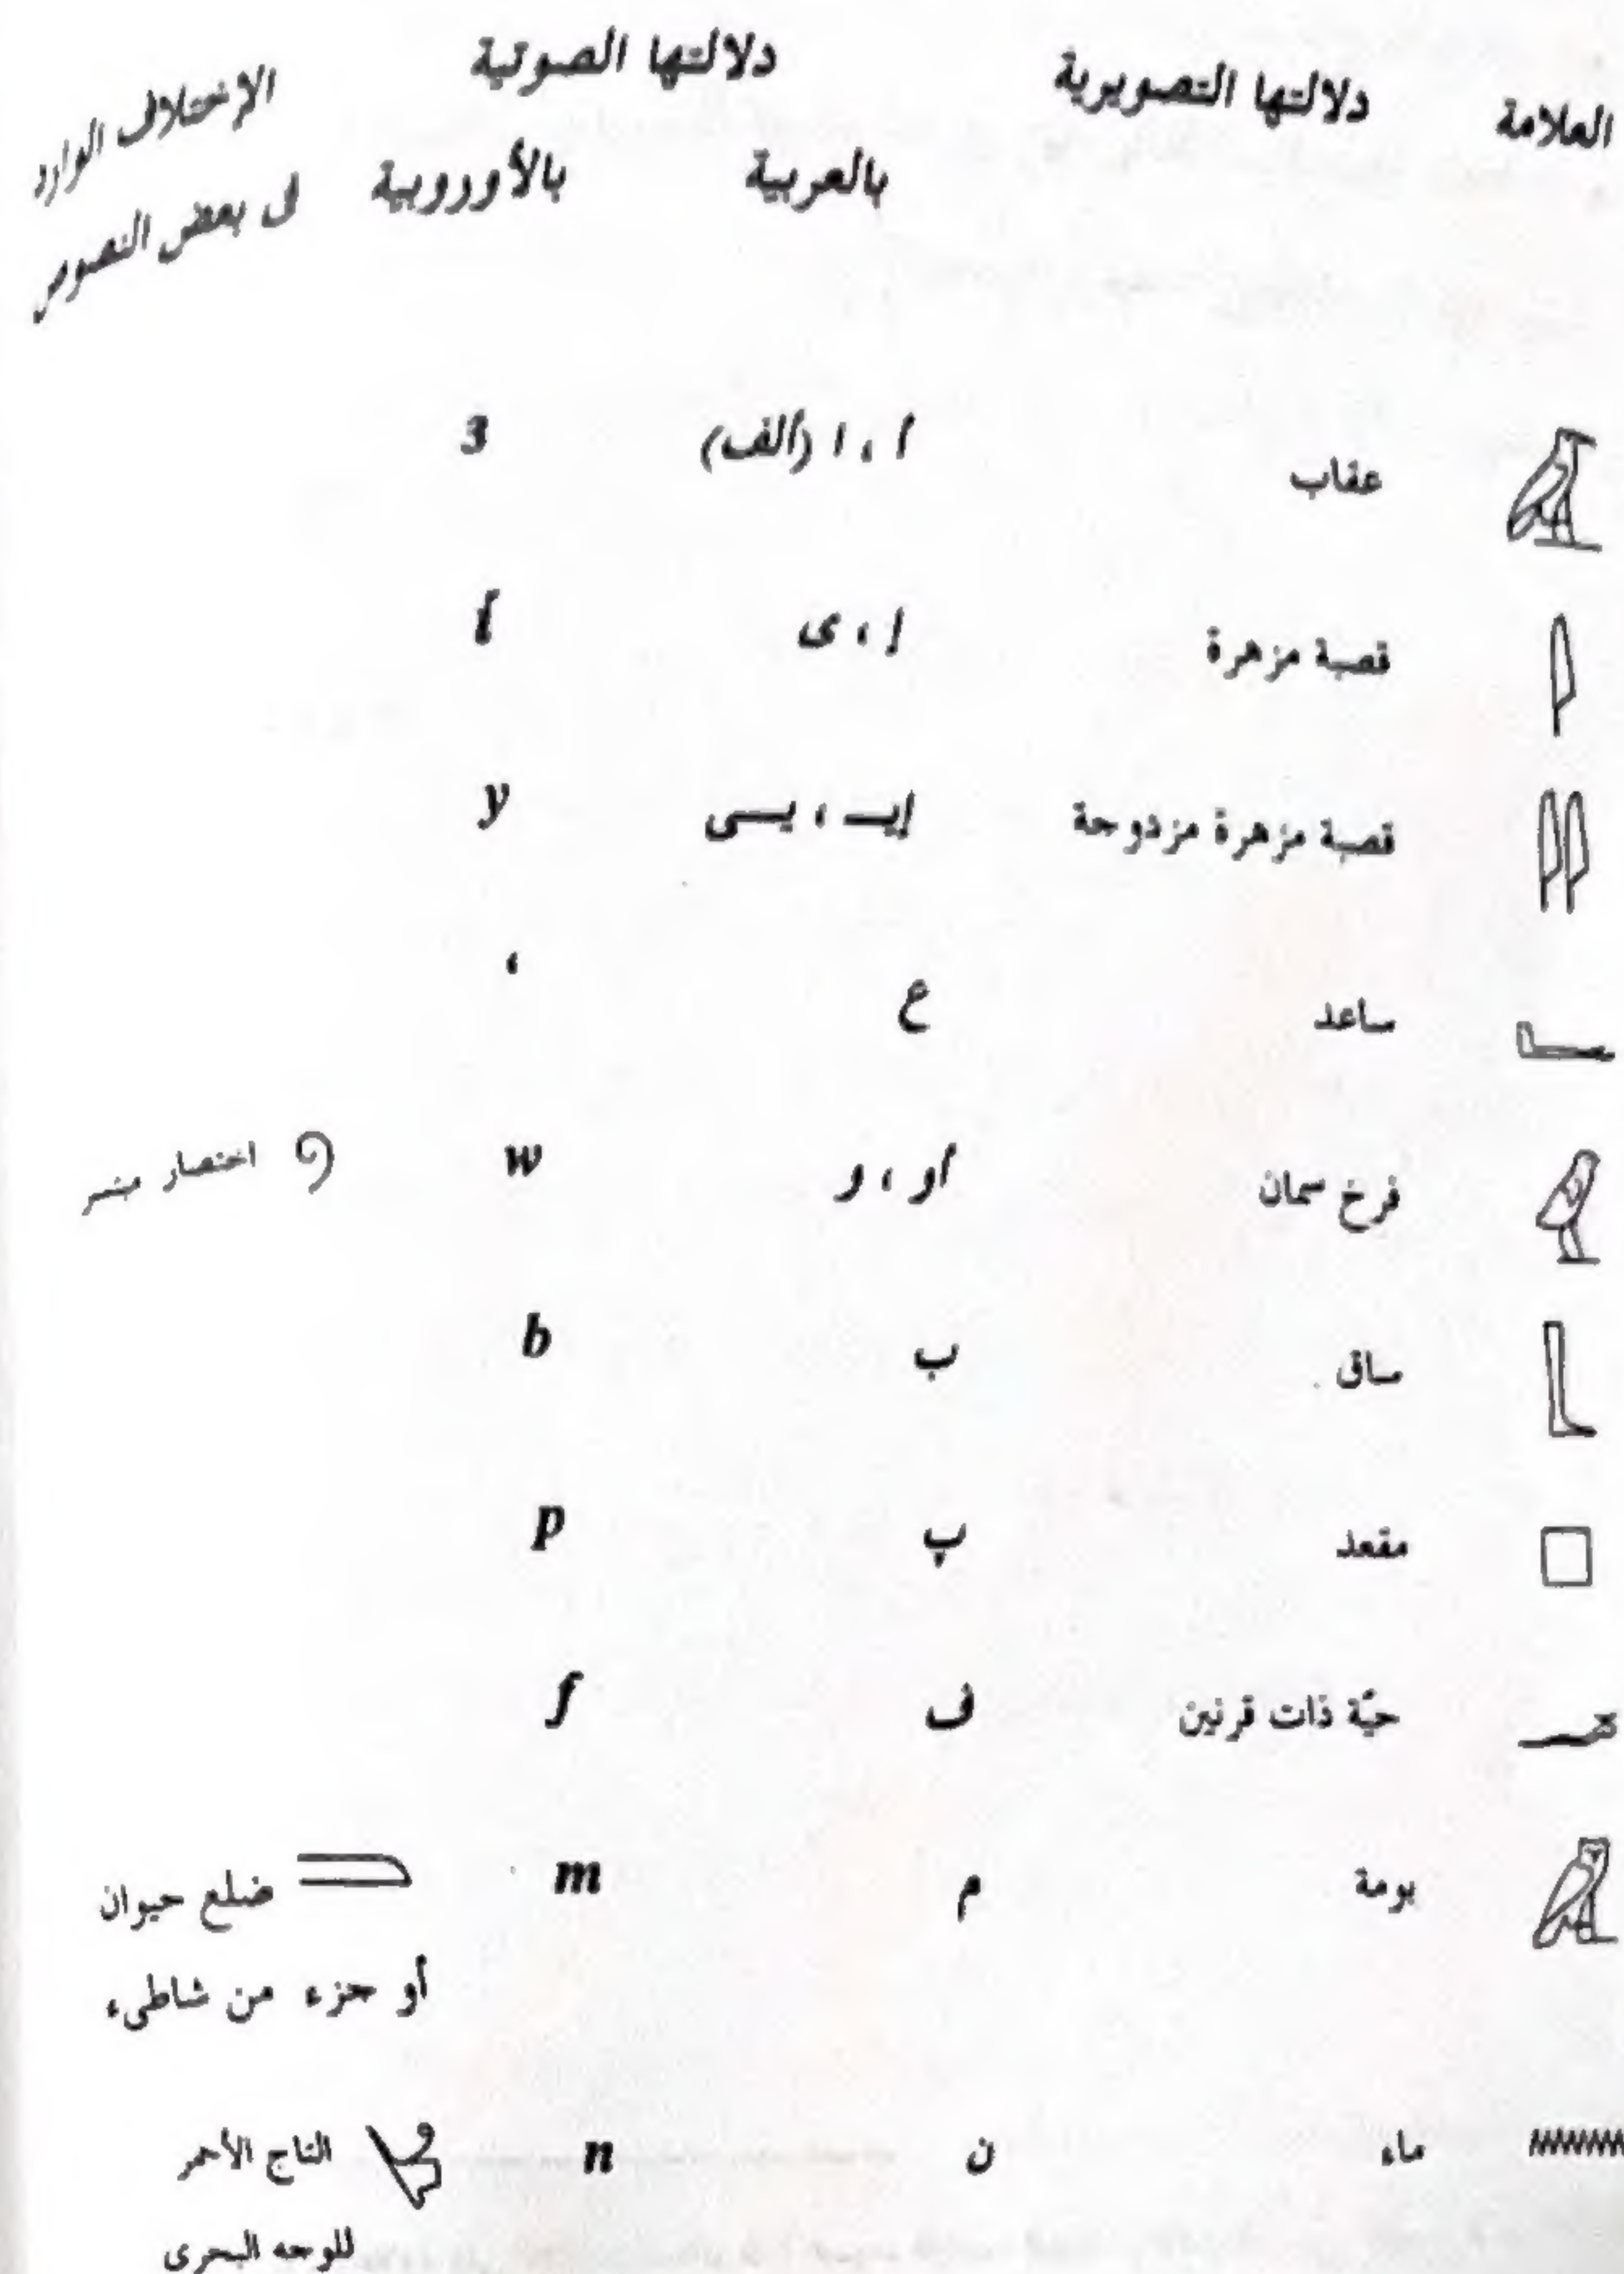 العلامة دلالتها التصويرية دلالتها الصوتية الإختلاف الوارد
بالعربية بالأوروبية فى بعض النصوص
عقاب أ ، ا (ألف) 3
قصبة مزهرة إ ، ى i
قصبة مزهرة مزدوجة إيـ ، يـى y
ساعد ع ‘
فرخ سمان أو ، و w اختصار
ساق ب b
مقعد پ p
حيّة ذات قرنين ف f
بومة م m ضلع حيوان
أو جزء من شاطىء
ماء ن n التاج الأحمر
للوجه البحرى